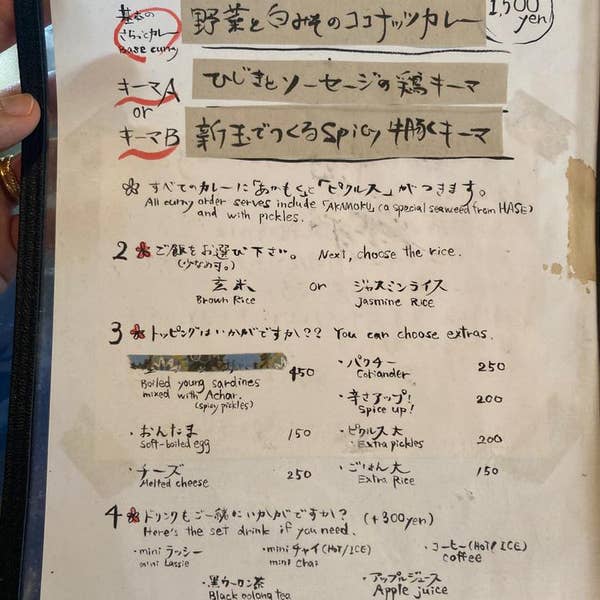 基本の
さらっとカレー
Base curry
野菜と白みそのココナッツカレー
1,500 yen
キーマA
ひじきとソーセージの鶏キーマ
or
キーマB
新玉でつくるSpicy 牛豚キーマ
すべてのカレーに「あかもく」と「ピクルス」がつきます。
All curry order serves include 「AKAMOKU」 (a special seaweed from HASE)
and with pickles.
2 ご飯をお選び下さい。 Next, choose the rice.
玄米 or ジャスミンライス
Brown Rice Jasmine Rice
3 トッピングはいかがですか?? You can choose extras.
450
Boiled young sardines
mixed with Achar.
(spicy pickles)
・パクチー 250
Coriander
・辛さアップ! 200
Spice up!
・おんたま 150
Soft-boiled egg
・ピクルス大 200
・Extra pickles
・チーズ 250
Melted cheese
・ごはん大 150
Extra Rice
4 ドリンクもご一緒にいかがですか? (+300yen)
Here's the set drink if you need.
・mini ラッシー ・mini チャイ (HOT/ICE) ・コーヒー (HOT/ICE)
mini Lassie mini Chai coffee
・黒ウーロン茶 ・アップルジュース
Black oolong tea Apple juice